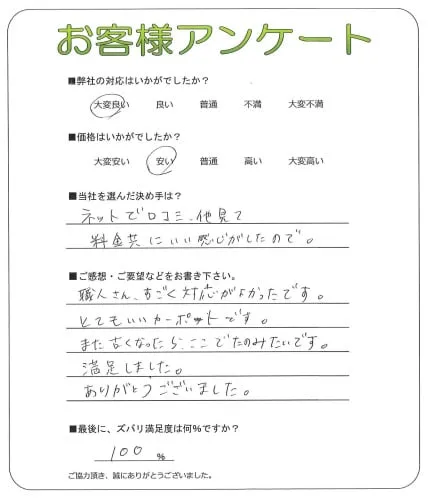 お客様アンケート
■弊社の対応はいかがでしたか?
大変良い 良い 普通 不満 大変不満
■価格はいかがでしたか?
大変安い 安い 普通 高い 大変高い
■当社を選んだ決め手は?
ネットで口コミ、他見て
料金共にいい感じがしたので。
■ご感想・ご要望などをお書き下さい。
職人さん、すごく対応がよかったです。
とてもいいカーポットです。
また古くなったら、ここでたのみたいです。
満足しました。
ありがとうございました。
■最後に、ズバリ満足度は何%ですか?
100 %
ご協力頂き、誠にありがとうございました。